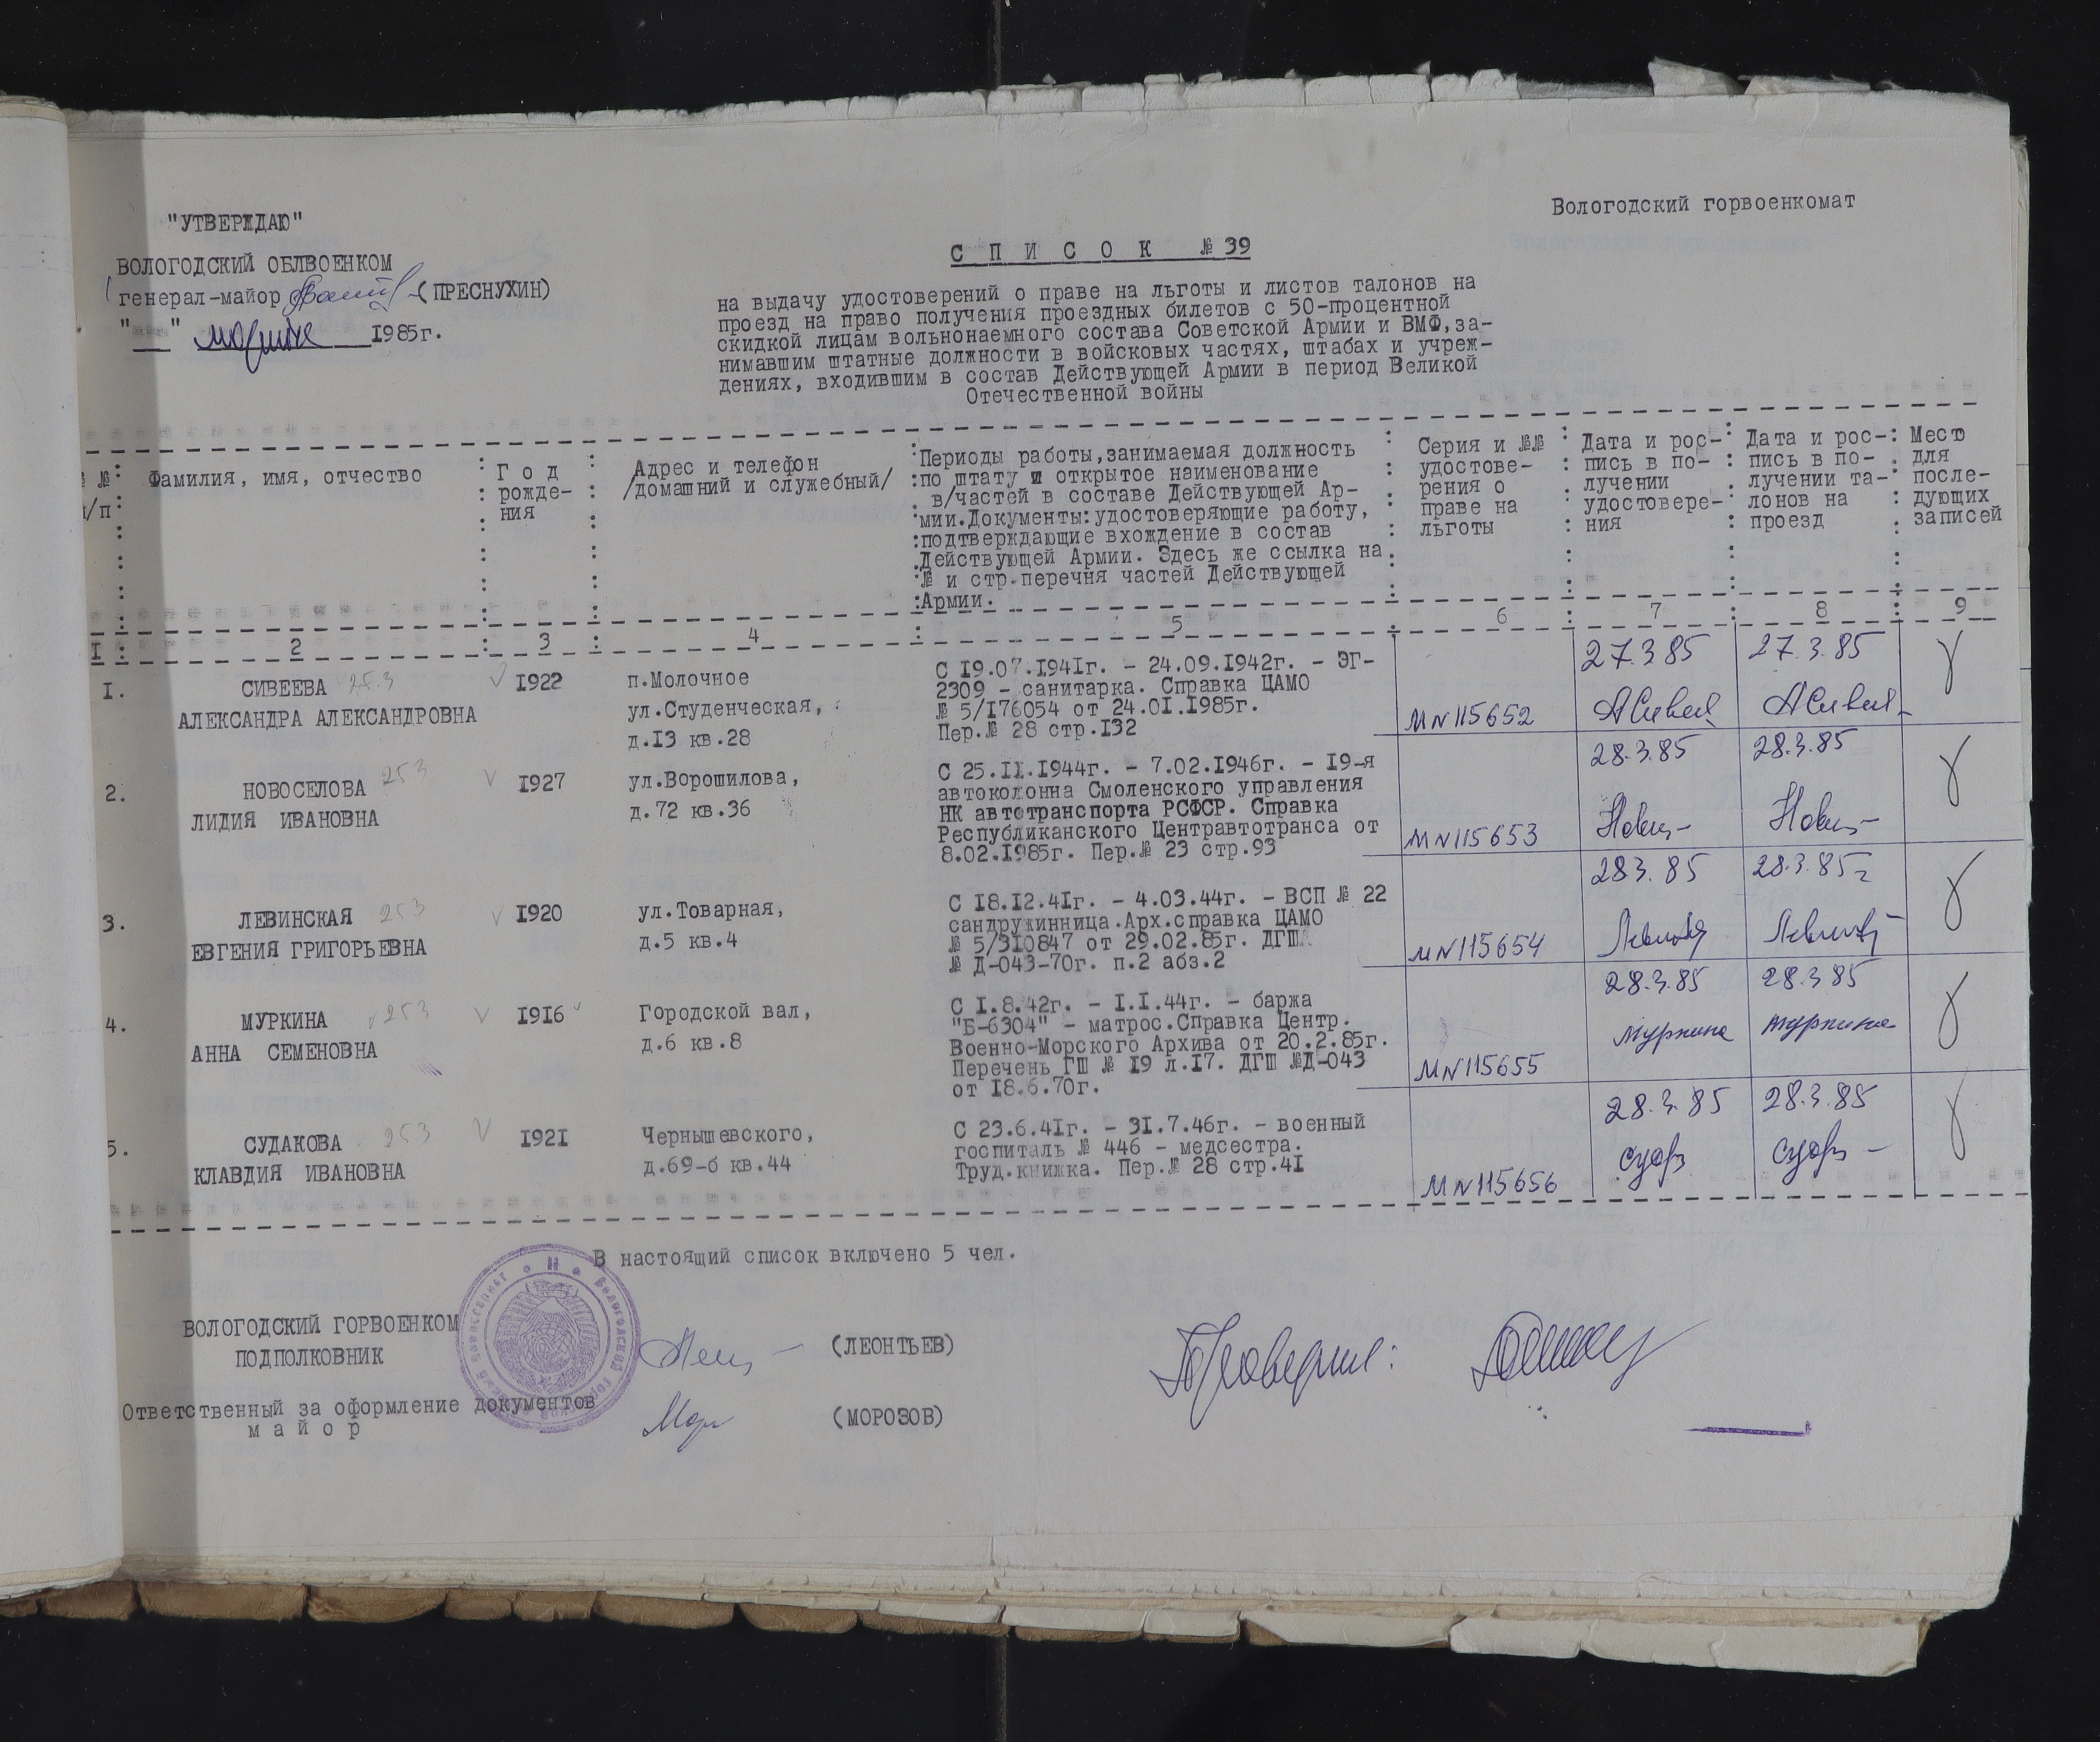 Вологодский горвоенкомат
"УТВЕРЖДАЮ"
ВОЛОГОДСКИЙ ОБЛВОЕНКОМ
генерал-майор (ПРЕСНУХИН)
" " марта 1985г.
С П И С О К № 39
на выдачу удостоверений о праве на льготы и листов талонов на
проезд на право получения проездных билетов с 50-процентной
скидкой лицам вольнонаемного состава Советской Армии и ВМФ,за-
нимавшим штатные должности в войсковых частях, штабах и учреж-
дениях, входившим в состав Действующей Армии в период Великой
Отечественной войны
№ п/п
Фамилия, имя, отчество
Г о д
рожде-
ния
Адрес и телефон
/домашний и служебный/
Периоды работы,занимаемая должность
по штату и открытое наименование
в/частей в составе Действующей Ар-
мии.Документы:удостоверяющие работу,
подтверждающие вхождение в состав
Действующей Армии. Здесь же ссылка на
№ и стр.перечня частей Действующей
Армии.
Серия и №№
удостове-
рения о
праве на
льготы
Дата и рос-
пись в по-
лучении
удостовере-
ния
Дата и рос-
пись в по-
лучении та-
лонов на
проезд
Место
для
после-
дующих
записей
I 2 3 4 5 6 7 8 9
I.
СИВЕЕВА
АЛЕКСАНДРА АЛЕКСАНДРОВНА
I922
п.Молочное
ул.Студенческая,
д.I3 кв.28
С I9.07.I94Iг. - 24.09.I942г. - ЭГ-
2309 - санитарка. Справка ЦАМО
№ 5/I76054 от 24.0I.I985г.
Пер.№ 28 стр.I32
МN115652
27.3 85
27.3.85
2.
НОВОСЕЛОВА 253
ЛИДИЯ ИВАНОВНА
I927
ул.Ворошилова,
д.72 кв.36
С 25.II.I944г. - 7.02.I946г. - I9-я
автоколонна Смоленского управления
НК автотранспорта РСФСР. Справка
Республиканского Центравтотранса от
8.02.I985г. Пер.№ 23 стр.93
МN115653
28.3.85
28.3.85
3.
ЛЕВИНСКАЯ 253
ЕВГЕНИЯ ГРИГОРЬЕВНА
I920
ул.Товарная,
д.5 кв.4
С I8.I2.4Iг. - 4.03.44г. - ВСП № 22
сандружинница.Арх.справка ЦАМО
№ 5/3I0847 от 29.02.85г. ДГШ
№ Д-043-70г. п.2 абз.2
МN115654
283.85
28.3.85г
4.
МУРКИНА 253
АННА СЕМЕНОВНА
I9I6
Городской вал,
д.6 кв.8
С I.8.42г. - I.I.44г. - баржа
"Б-6304" - матрос.Справка Центр.
Военно-Морского Архива от 20.2.85г.
Перечень ГШ № I9 л.I7. ДГШ №Д-043
от I8.6.70г.
МN115655
28.3.85
Муркина
28.3 85
Муркина
5.
СУДАКОВА 253
КЛАВДИЯ ИВАНОВНА
I92I
Чернышевского,
д.69-б кв.44
С 23.6.4Iг. - 3I.7.46г. - военный
госпиталь № 446 - медсестра.
Труд.книжка. Пер.№ 28 стр.4I
МN115656
28.3.85
28.3.85
В настоящий список включено 5 чел.
ВОЛОГОДСКИЙ ГОРВОЕНКОМ
ПОДПОЛКОВНИК
(ЛЕОНТЬЕВ)
Ответственный за оформление документов
м а й о р
(МОРОЗОВ)
Проверил: